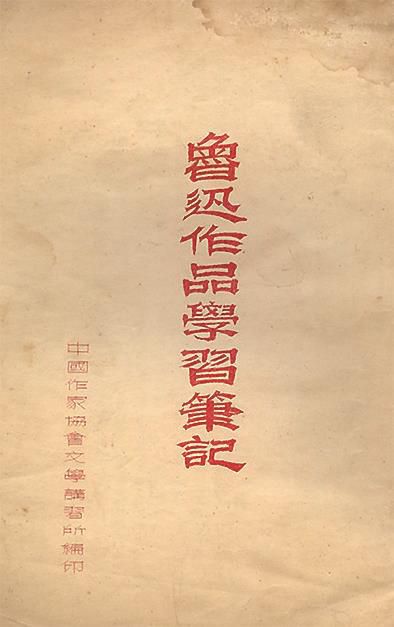 魯迅作品學習筆記
中國作家協會文學講習所編印